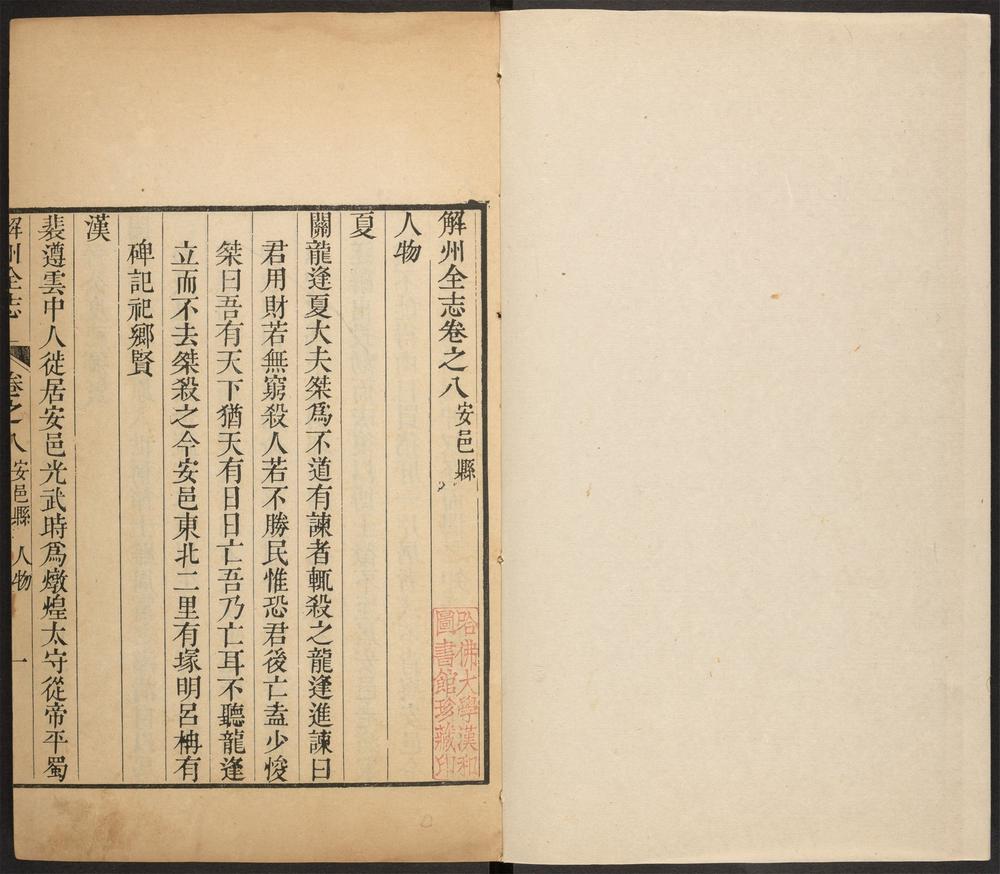 解州全志卷之八 安邑縣
人物
夏
關龍逢夏大夫桀爲不道有諫者輒殺之龍逢進諫曰
君用財若無窮殺人若不勝民惟恐君後亡盍少悛
桀曰吾有天下猶天有日日亡吾乃亡耳不聽龍逢
立而不去桀殺之今安邑東北二里有塚明呂柟有
碑記祀鄉賢
漢
裴遵雲中人徙居安邑光武時爲燉煌太守從帝平蜀
解州全志 卷之八 安邑縣 人物 一
哈佛大學漢和
圖書館珍藏印